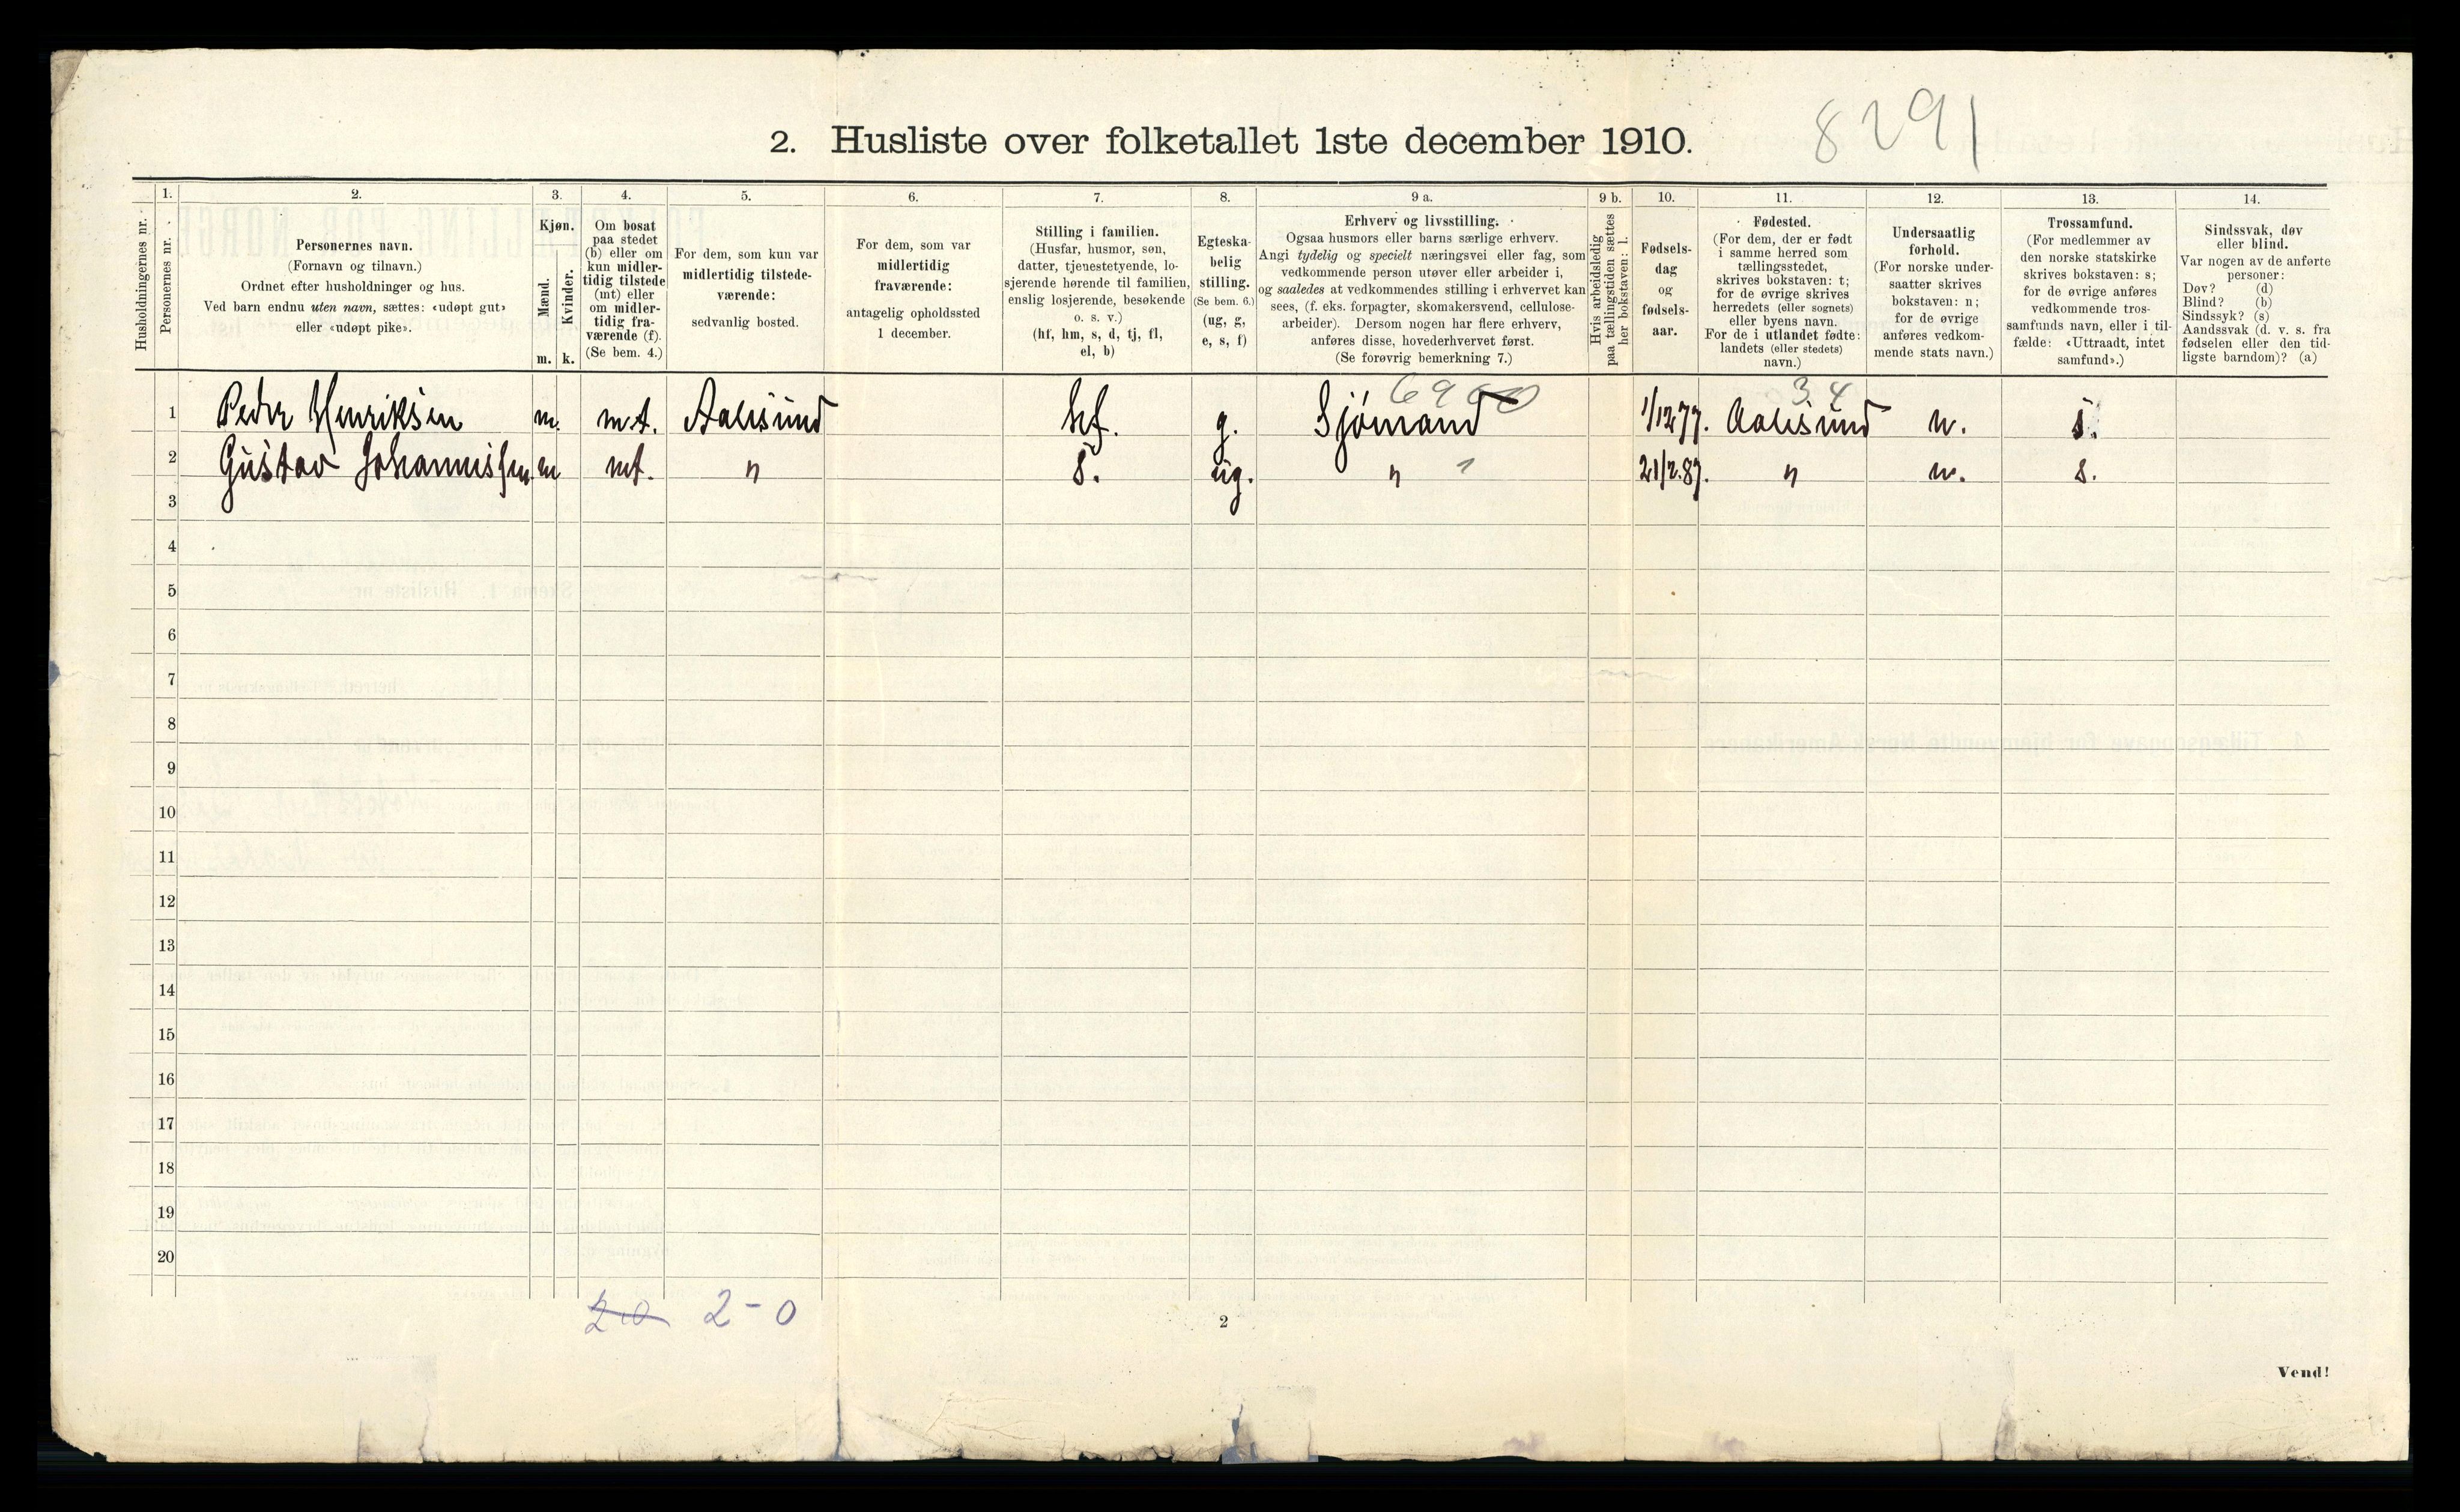 8291
2. Husliste over folketallet 1ste december 1910.
Husholdningernes nr.
1.
Personernes nr.
2.
Personernes navn.
(Fornavn og tilnavn.)
Ordnet efter husholdninger og hus.
Ved barn endnu uten navn, sættes: «udøpt gut»
eller «udøpt pike».
3.
Kjøn.
Mænd.
Kvinder.
m. k.
4.
Om bosat
paa stedet
(b) eller om
kun midler-
tidig tilstede
(mt) eller
om midler-
tidig fra-
værende (f).
(Se bem. 4.)
5.
For dem, som kun var
midlertidig tilstede-
værende:
sedvanlig bosted.
6.
For dem, som var
midlertidig
fraværende:
antagelig opholdssted
1 december.
7.
Stilling i familien.
(Husfar, husmor, søn,
datter, tjenestetyende, lo-
sjerende hørende til familien,
enslig losjerende, besøkende
o. s. v.)
(hf, hm, s, d, tj, fl,
el, b)
8.
Egteska-
belig
stilling.
(Se bem. 6.)
(ug, g,
e, s, f)
9 a.
Erhverv og livsstilling.
Ogsaa husmors eller barns særlige erhverv.
Angi tydelig og specielt næringsvei eller fag, som
vedkommende person utøver eller arbeider i,
og saaledes at vedkommendes stilling i erhvervet kan
sees, (f. eks. forpagter, skomakersvend, cellulose-
arbeider). Dersom nogen har flere erhverv,
anføres disse, hovederhvervet først.
(Se forøvrig bemerkning 7.)
9 b.
Hvis arbeidsledig
paa tællingstiden sættes
her bokstaven: l.
10.
Fødsels-
dag
og
fødsels-
aar.
11.
Fødested.
(For dem, der er født
i samme herred som
tællingsstedet,
skrives bokstaven: t;
for de øvrige skrives
herredets (eller sognets)
eller byens navn.
For de i utlandet fødte:
landets (eller stedets)
navn.)
12.
Undersaatlig
forhold.
(For norske under-
saatter skrives
bokstaven: n;
for de øvrige
anføres vedkom-
mende stats navn.)
13.
Trossamfund.
(For medlemmer av
den norske statskirke
skrives bokstaven: s;
for de øvrige anføres
vedkommende tros-
samfunds navn, eller i til-
fælde: «Uttraadt, intet
samfund».)
14.
Sindssvak, døv
eller blind.
Var nogen av de anførte
personer:
Døv? (d)
Blind? (b)
Sindssyk? (s)
Aandssvak (d. v. s. fra
fødselen eller den tid-
ligste barndom)? (a)
6900 34
1 Peder Henriksen m. mt. Aalesund hf. g. Sjømand 1/12 77. Aalesund n. s.
2 Gustav Johannissen. m mt. " s. ug. " 21/2.87. " n. s.
3
4
5
6
7
8
9
10
11
12
13
14
15
16
17
18
19
20
2-0 2-0
2
Vend!